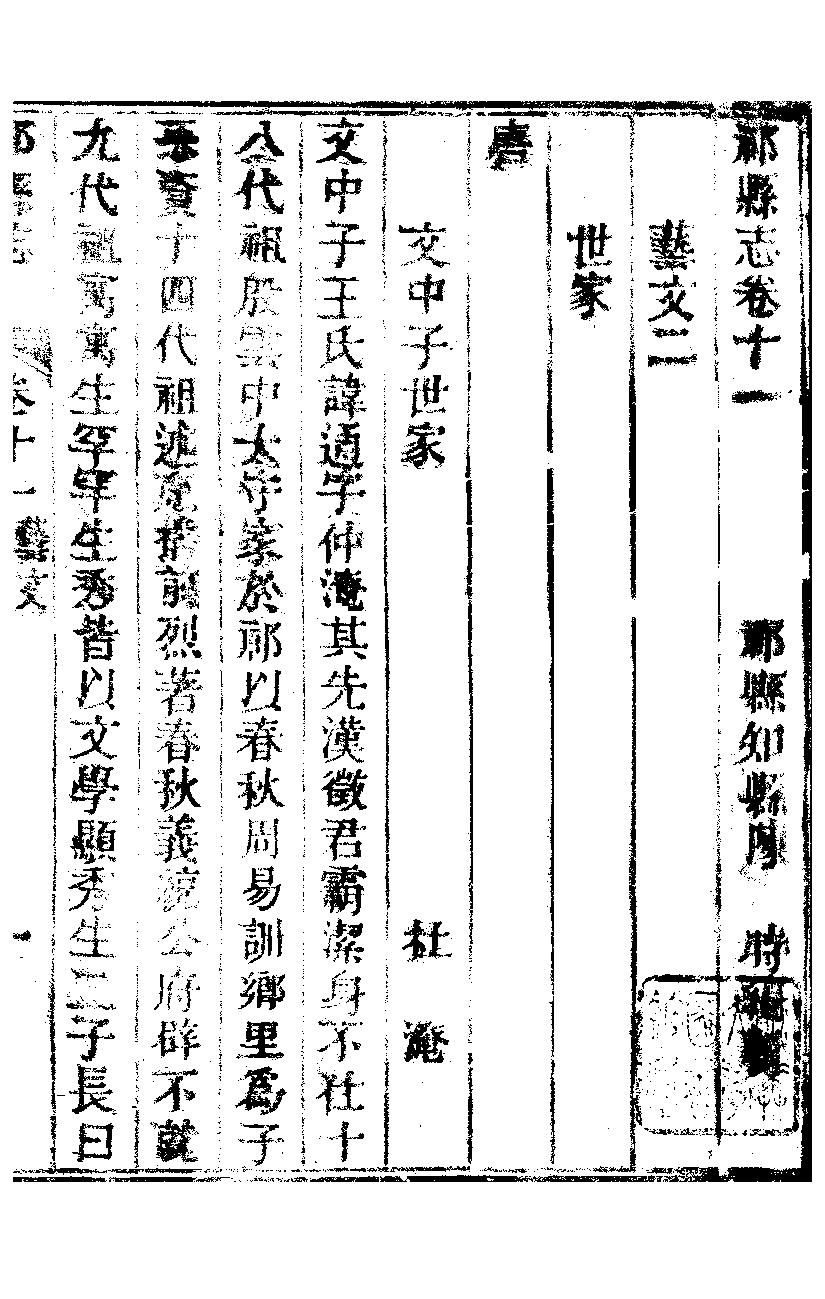 祁縣志卷十一 祁縣知縣陳 時
藝文二
世家
唐
文中子世家 杜 淹
文中子王氏諱通字仲淹其先漢徵君霸潔身不仕十
八代祖殷雲中太守家於祁以春秋周易訓鄉里爲子
孫資十四代祖述克播前烈著春秋義統公府辟不就
九代祖寓寓生罕罕生秀皆以文學顯秀生二子長曰
祁縣志 卷十一 藝文 一